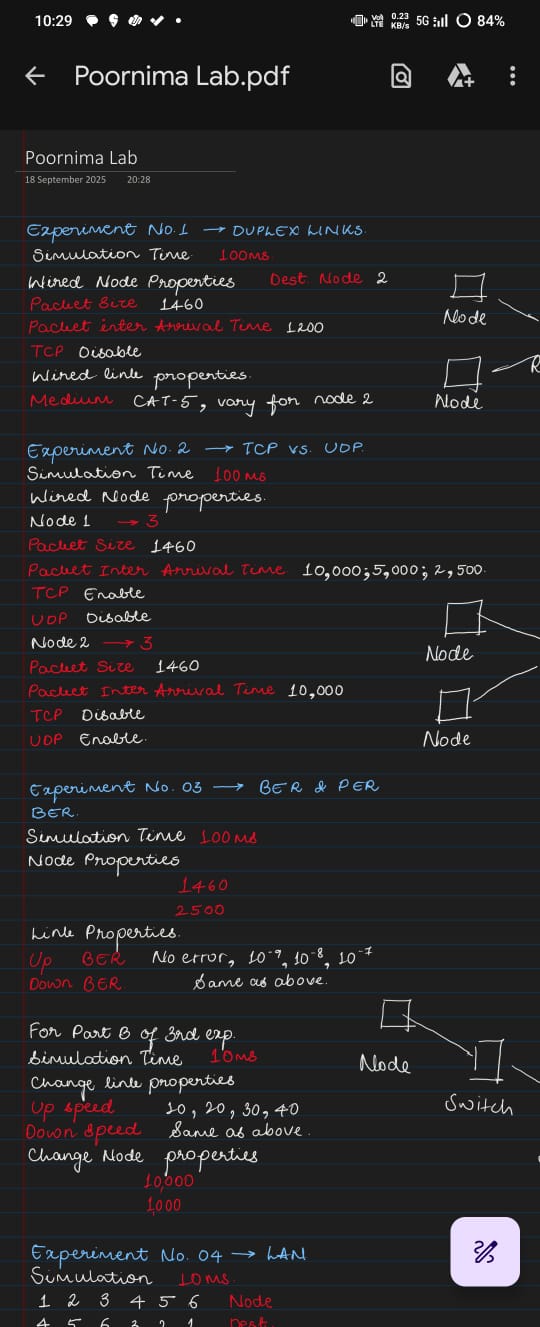 10:29
VoD LTE 0.23 KB/s 5G 84%
Poornima Lab.pdf
Poornima Lab
18 September 2025 20:28
Experiment No.1 → DUPLEX LINKS.
Simulation Time 100ms
Wired Node Properties Dest Node 2
Packet Size 1460
Node
Packet inter Arrival Time 1200
TCP Disable
R
Wired link properties.
Medium CAT-5, vary for node 2
Node
Experiment No. 2 → TCP vs. UDP.
Simulation Time 100 ms
Wired Node properties.
Node 1 → 3
Packet Size 1460
Packet Inter Arrival Time 10,000; 5,000; 2,500.
TCP Enable
UDP Disable
Node 2 → 3
Node
Packet Size 1460
Packet Inter Arrival Time 10,000
TCP Disable
UDP Enable.
Node
Experiment No. 03 → BER & PER
BER.
Simulation Time 100 ms
Node Properties
1460
2500
Link Properties.
Up BER No error, 10⁻⁹, 10⁻⁸, 10⁻⁷
Down BER Same as above.
For Part B of 3rd exp.
Simulation Time 10ms
Node
Change link properties
Up speed 10, 20, 30, 40
Switch
Down Speed Same as above.
Change Node properties
10,000
1,000
Experiment No. 04 → LAN
Simulation 10ms.
1 2 3 4 5 6 Node
4 5 6 3 2 1 Dest.